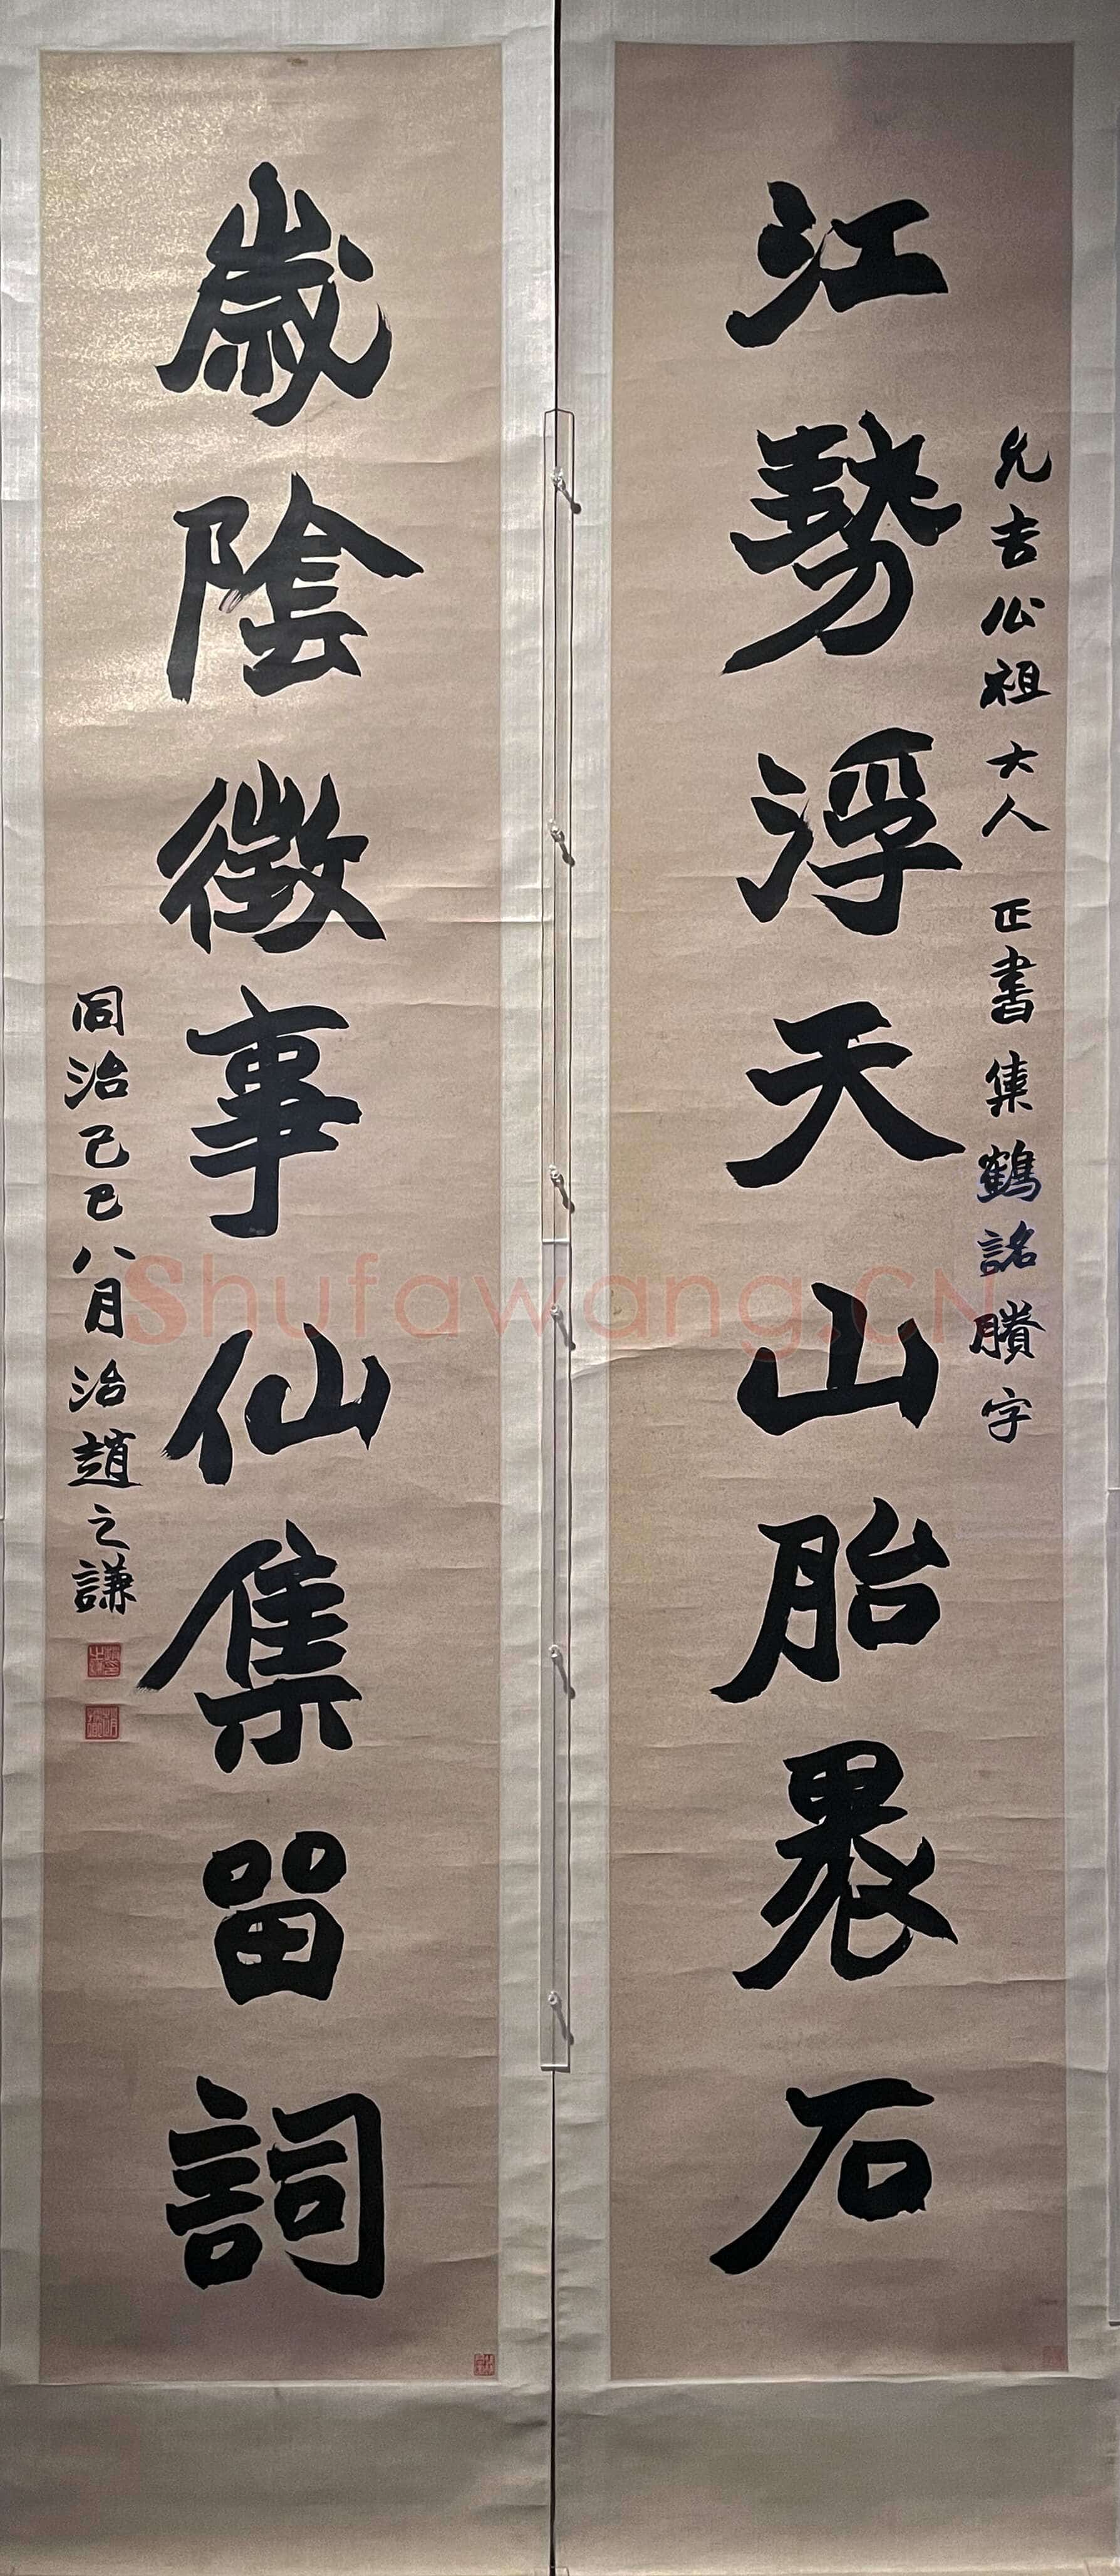 江勢浮天山胎裹石
允吉公祖大人正書集鶴銘賸字
歲陰徵事仙集留詞
同治己巳八月治趙之謙
Shufawang.CN